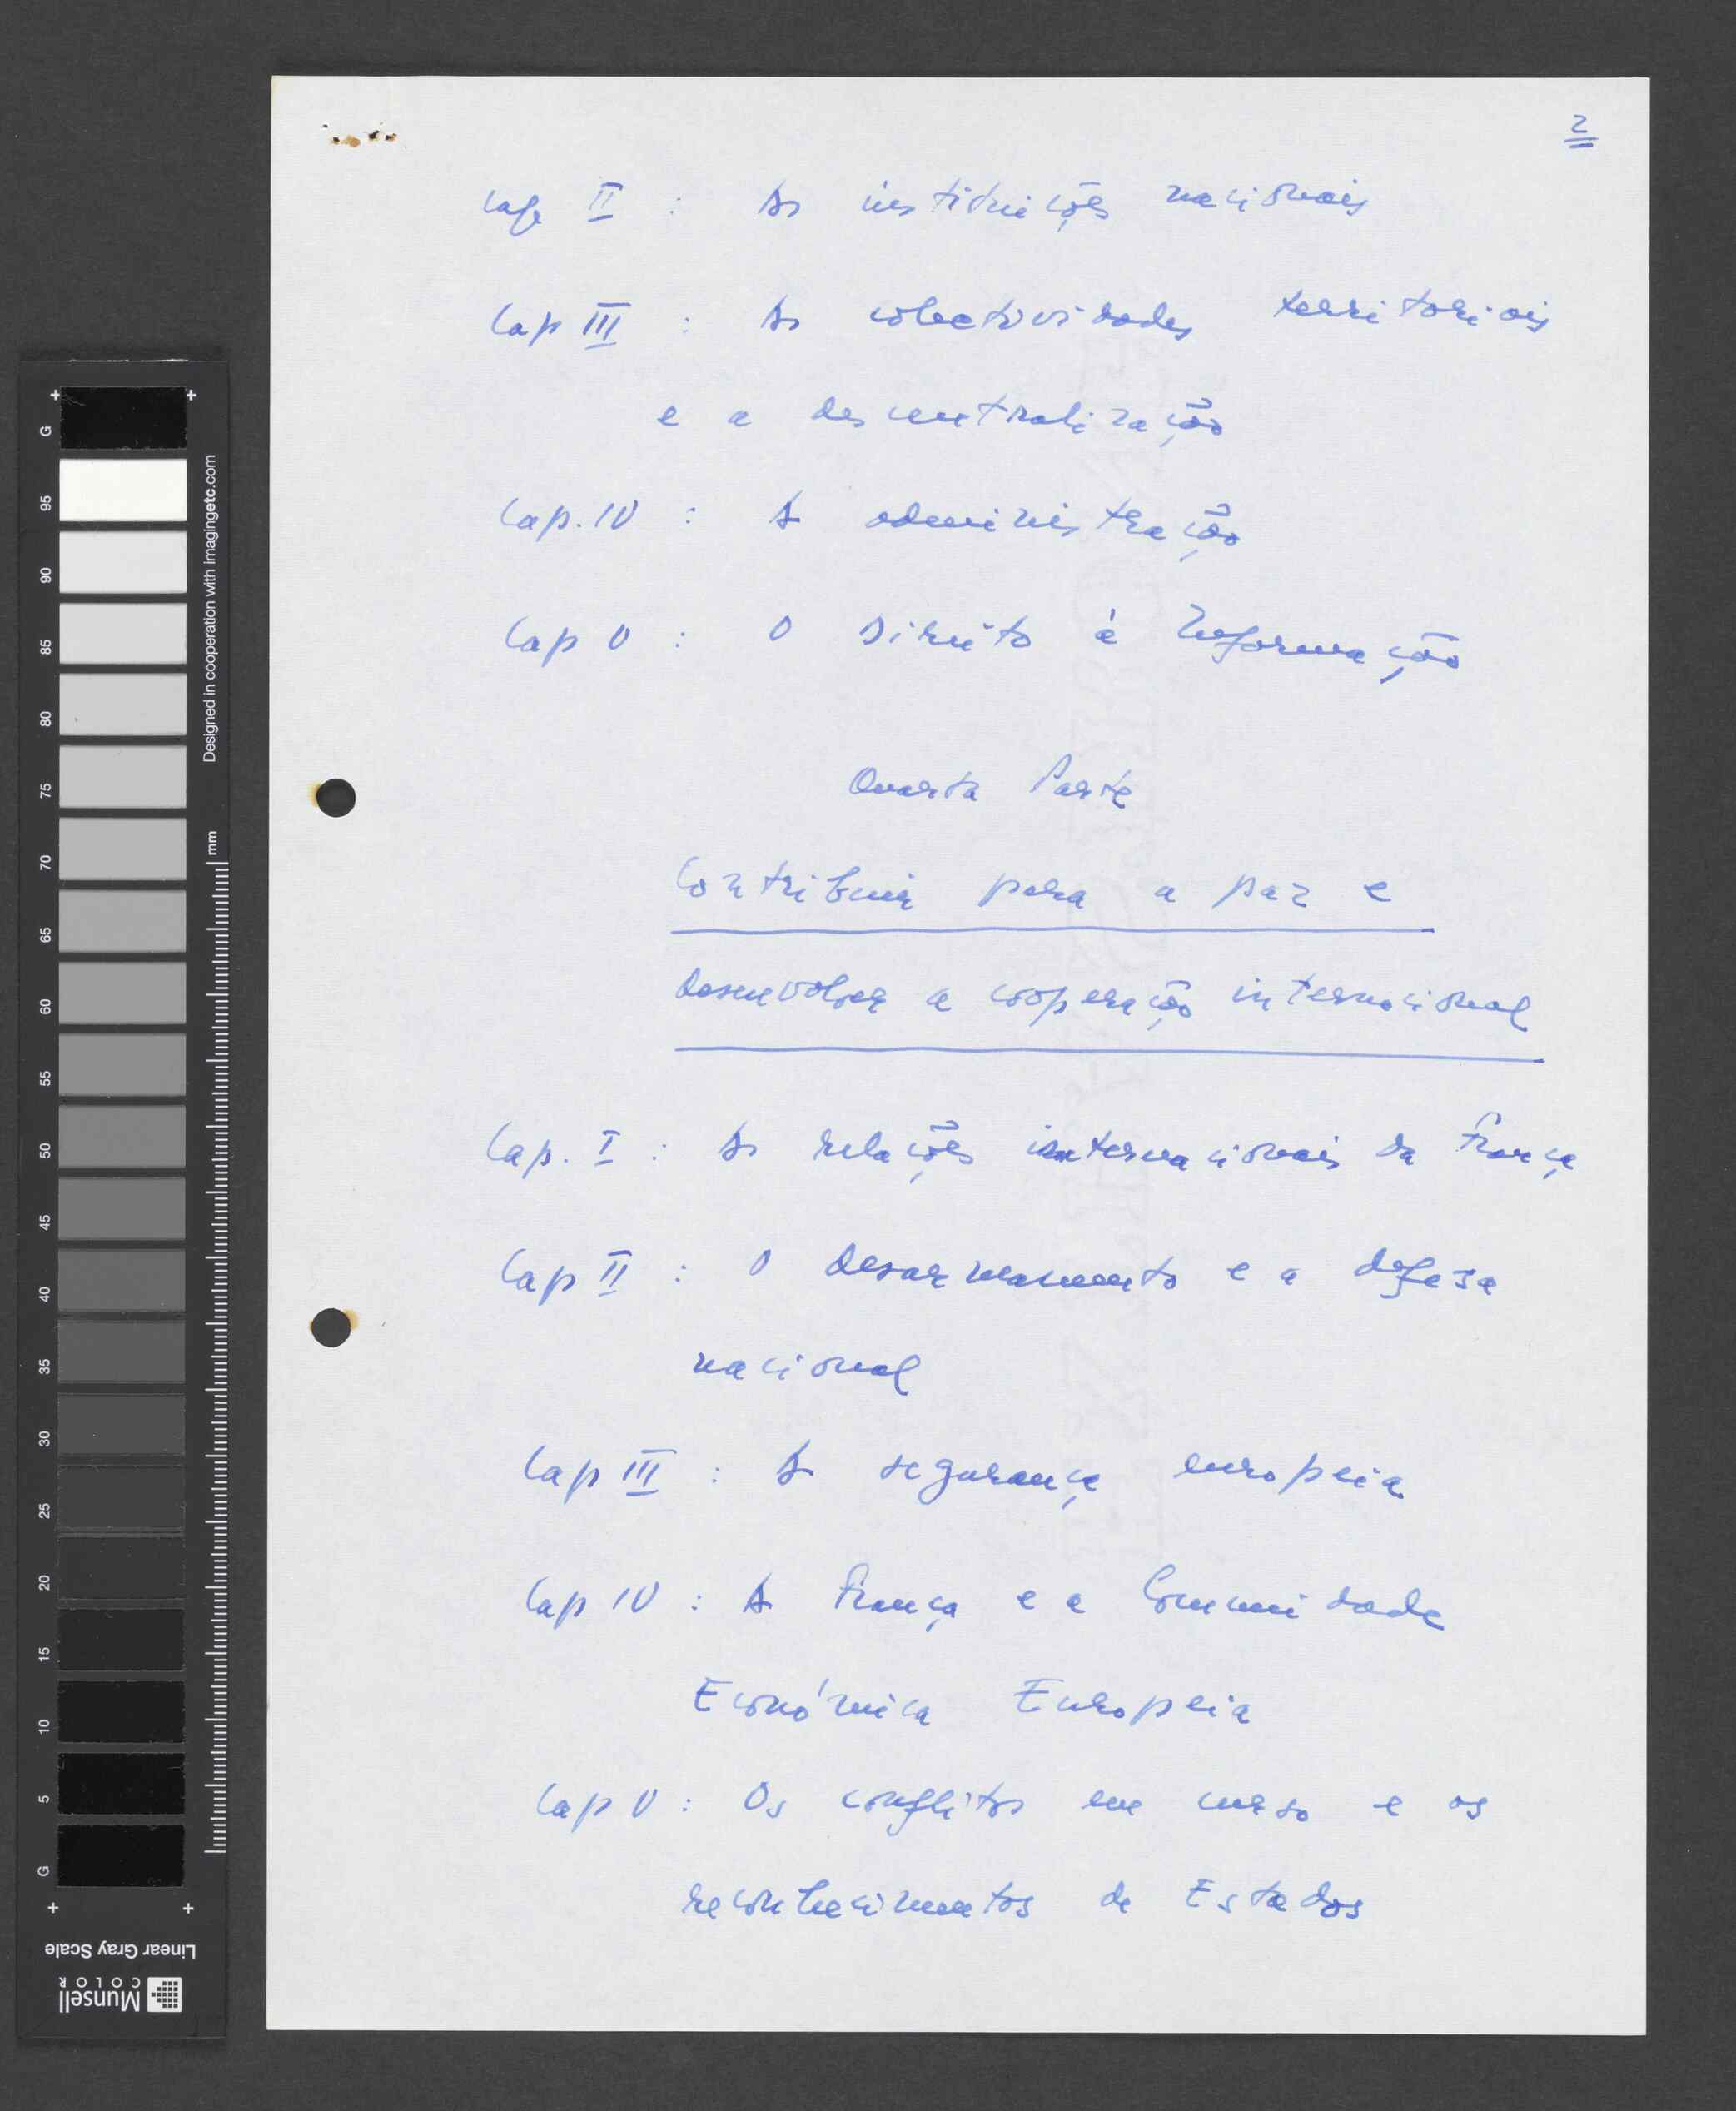 2
Cap II : As instituições nacionais
Cap III : As colectividades territoriais
e a descentralização
Cap. IV : A administração
Cap V : O Direito à Informação
Quarta Parte
Contribuir para a paz e
desenvolver a cooperação internacional
Cap. I : As relações internacionais da França
Cap II : O desarmamento e a defesa
nacional
Cap III : A segurança europeia
Cap IV : A França e a Comunidade
Económica Europeia
Cap V : Os conflitos em curso e os
reconhecimentos de Estados
G
95
90
85
80
75
70
65
60
55
50
45
40
35
30
25
20
15
10
5
G
Designed in cooperation with imagingetc.com
mm
Linear Gray Scale
Munsell
COLOR